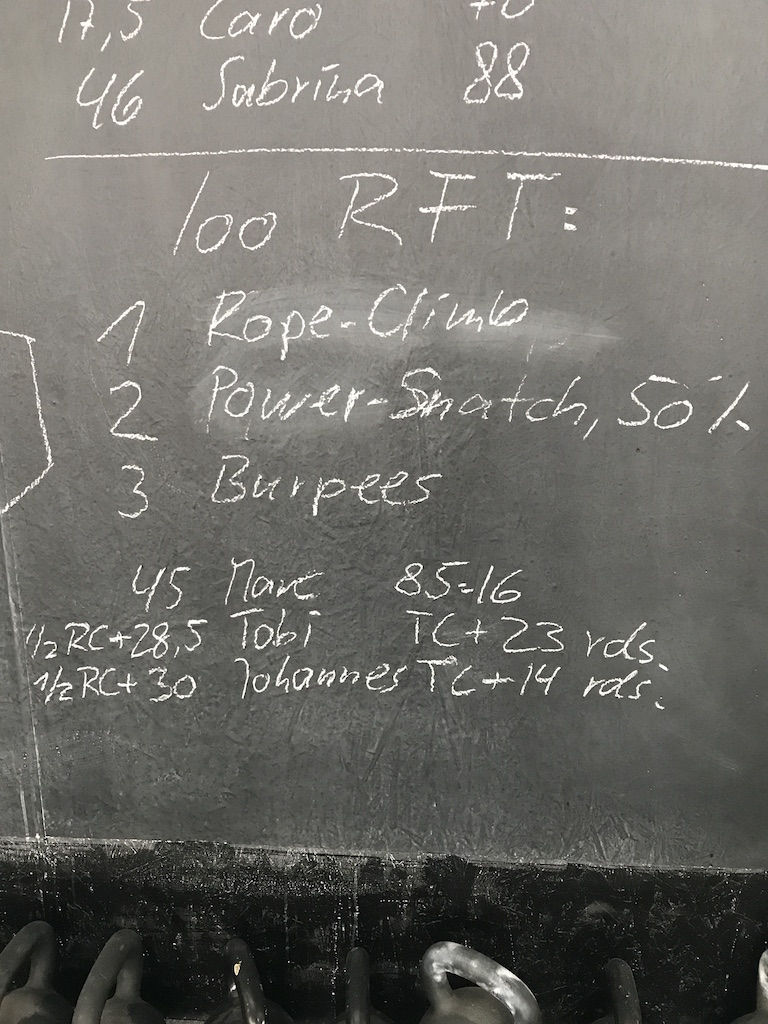 17,5 Caro 70
46 Sabrina 88
100 RFT:
1 Rope-Climb
2 Power-Snatch, 50%
3 Burpees
45 Marc 85:16
1/2 RC+28,5 Tobi TC+23 rds.
1/2 RC+30 Johannes TC+14 rds.